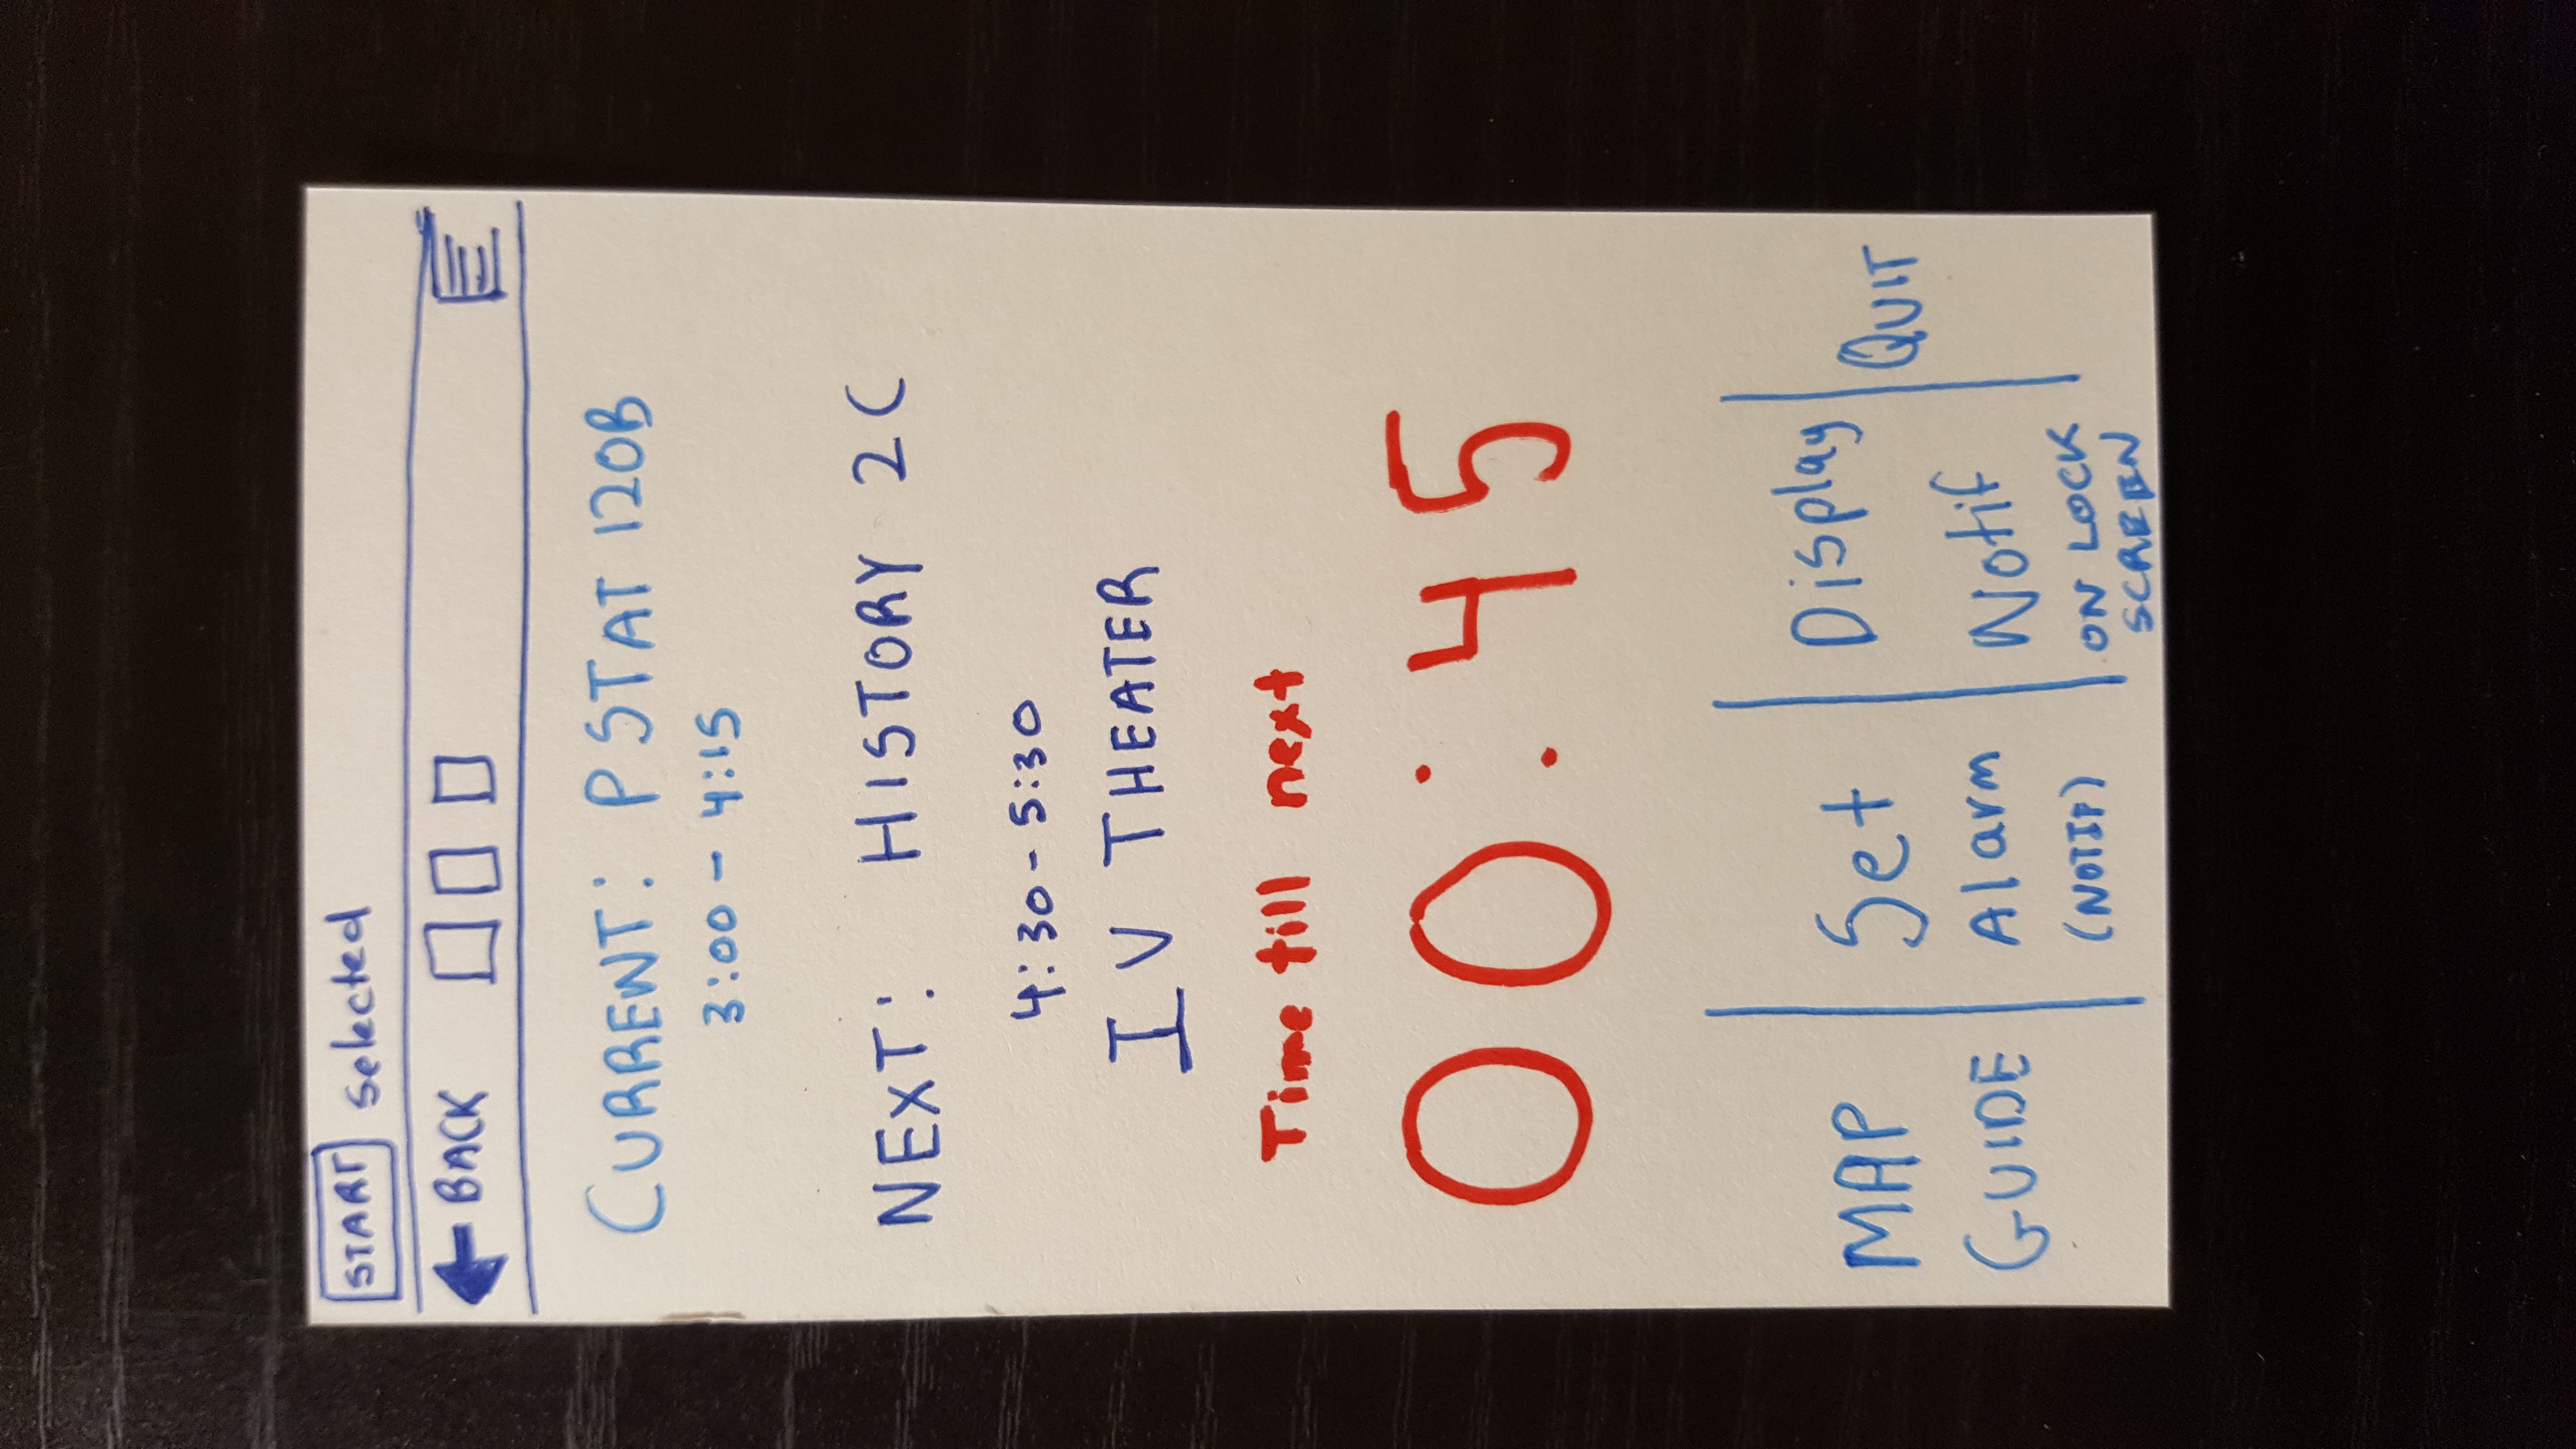 START selected
BACK
CURRENT: PSTAT 120B
3:00 - 4:15
NEXT: HISTORY 2C
4:30 - 5:30
IV THEATER
Time till next
00:45
MAP GUIDE
Set Alarm (NOTIF)
Display Notif ON LOCK SCREEN
QUIT